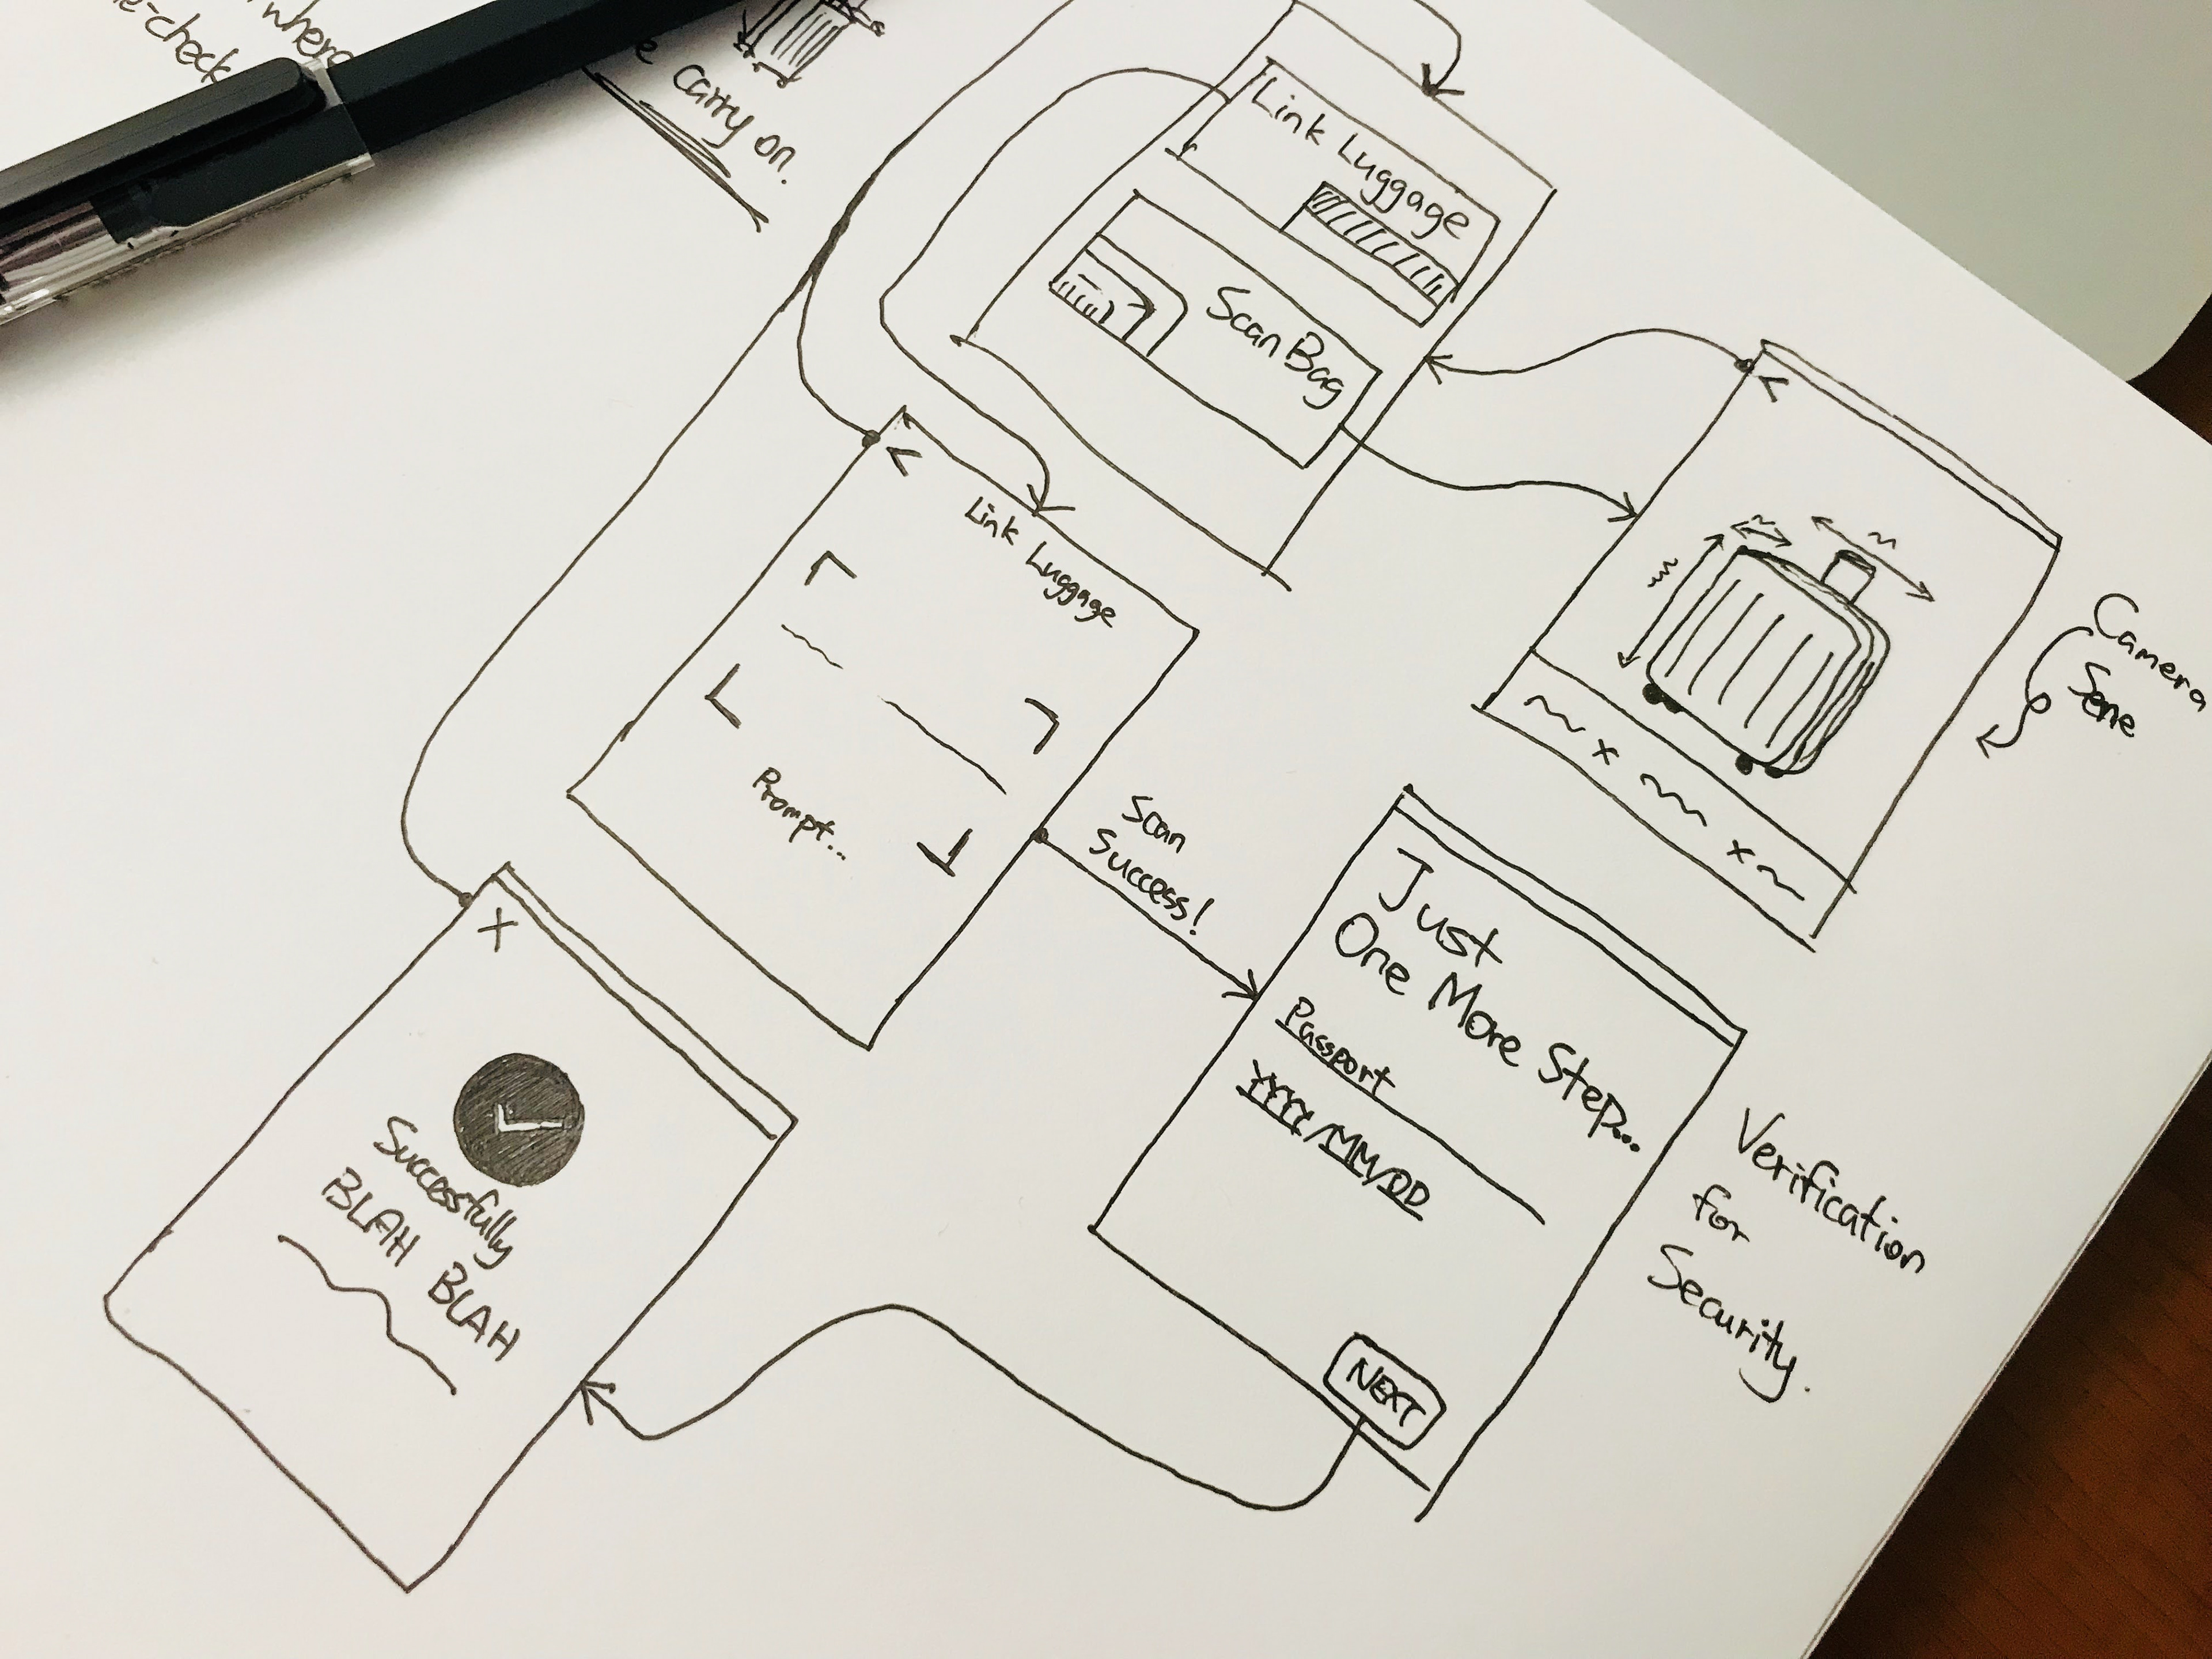 where
e-check
e carry on.
Link Luggage
Scan Bag
Link Luggage
Prompt...
Camera
Sene
Scan
Success!
Just
One More Step...
Passport
YYYY/MM/DD
NEXT
Verification
for
Security.
X
Successfully
BLAH BLAH